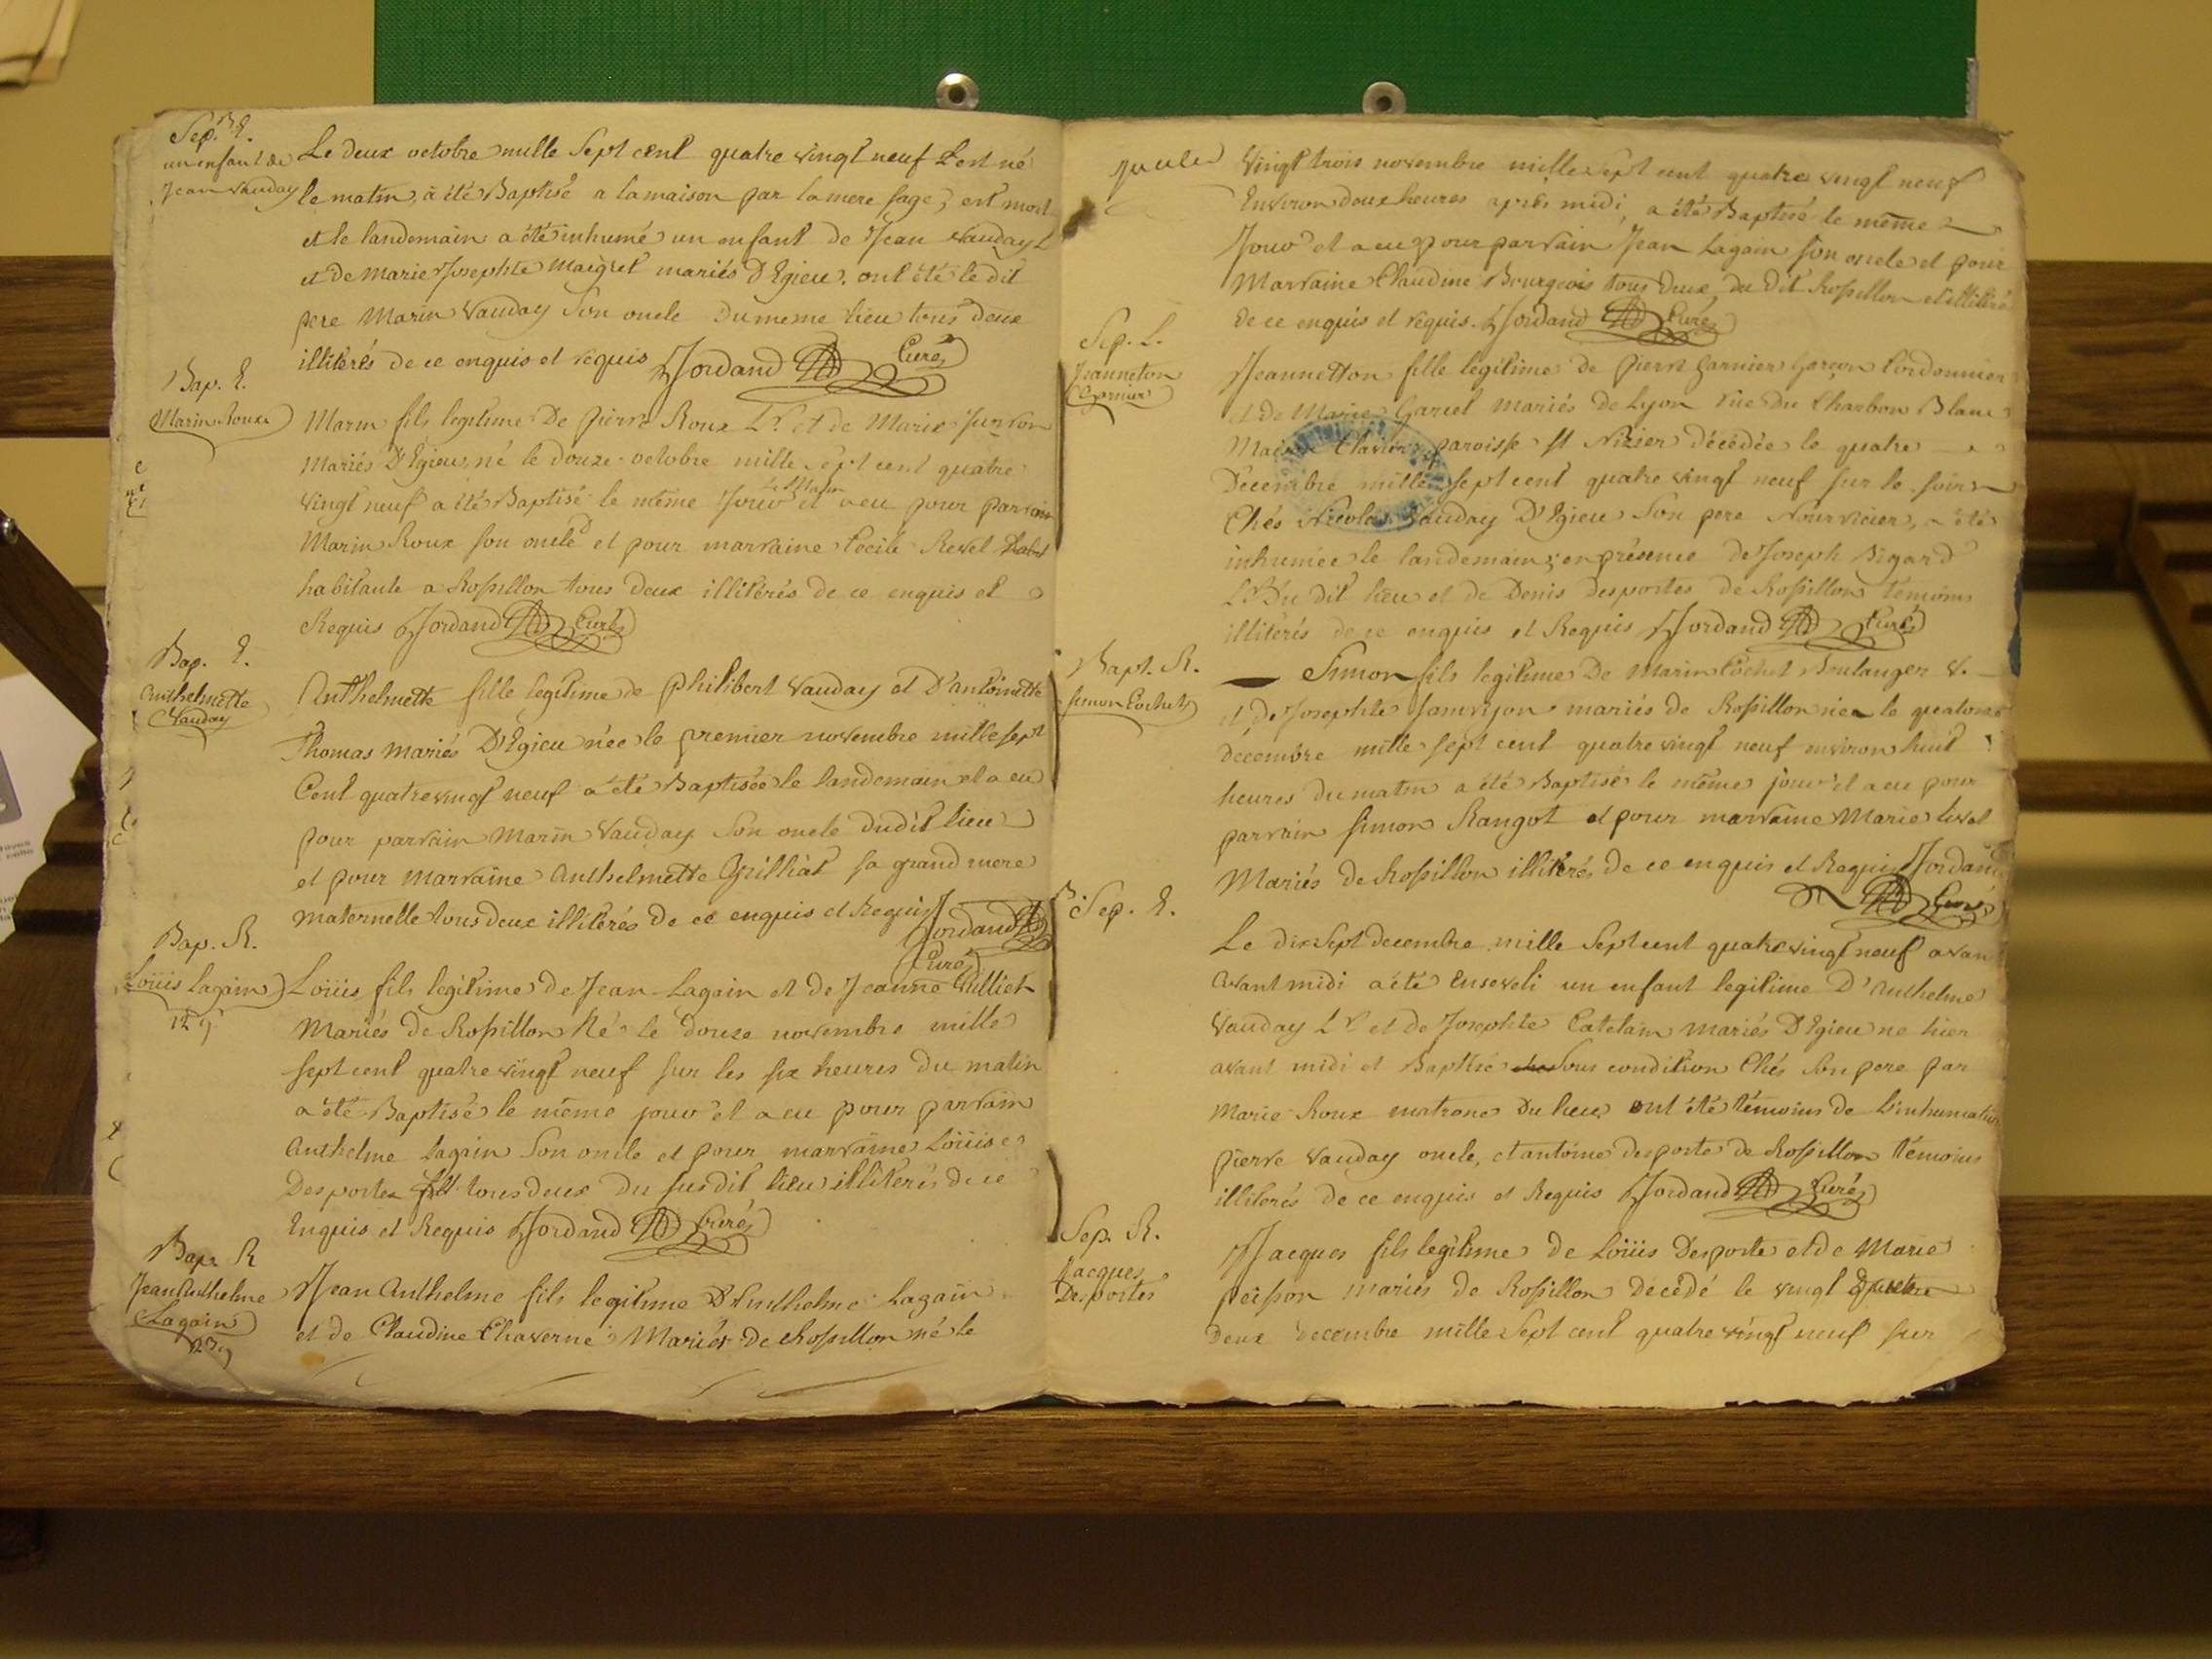 Sep. E.
un enfant de
Jean Vauday
Le deux octobre mille Sept cent quatre vingt neuf Est né
le matin, à été Baptisé a la maison par la mere sage, est mort
et le landemain a été inhumé un enfant de Jean Vauday L
et de Marie Josephte Maigret mariés D'Egieu. ont été le dit
pere Marin Vauday Son oncle Du meme lieu tous deux
illiterés de ce enquis et requis Jordand Curé
Bap. E.
Marin Roux
Marin fils legitime De Pierre Roux Lr. et de Marie
Mariés D'Egieu, né le Douze octobre mille Sept cent quatre
le Matin
vingt neuf a été Baptisé le même Jour et a eu pour parrain
Marin Roux son oncle et pour marraine Cecile Revel
habitante a Rossillon tous deux illiterés de ce enquis et
Requis Jordand Curé
Bap. E.
Anthelmette
Vauday
Anthelmette fille legitime de Philibert Vauday et D'antoinette
Thomas mariés D'Egieu née le premier novembre mille sept
Cent quatre vingt neuf a été Baptisée le landemain et a eu
pour parrain Marin Vauday Son oncle dudit lieu
et pour Marraine Anthelmette Grilliat sa grand mere
maternelle tous deux illiterés de ce enquis et Requis Jordand
Curé
Bap. R.
Loüis Lagain
12 9
Loüis fils legitime de Jean Lagain et de Jeanne Vulliet
Mariés de Rossillon Né le douze novembre mille
sept cent quatre vingt neuf sur les six heures du matin
a été Baptisé le même jour et a eu pour parrain
Anthelme Lagain Son oncle et pour marraine Loüise
Desportes tous deux du susdit lieu illiterés de ce
Enquis et Requis Jordand Curé
Bap. R
Jean Anthelme
Lagain
Jean Anthelme fils legitime D'Anthelme Lagain
et de Claudine Chaverne Mariés de Rossillon né le
vingt trois novembre mille sept cent quatre vingt neuf
Environ deux heures après midi, a été Baptisé le même
Jour et a eu pour parrain Jean Lagain son oncle et pour
Marraine Claudine Bourgeois tous Deux du Dit Rossillon illitérés
de ce enquis et requis. Jordand Curé
Sep. L.
Jeanneton
Garnier
Jeannetton fille legitime de Pierre Garnier Garçon Cordonnier
et de Marie Garuel mariés de Lyon rüe Du Charbon Blanc
paroisse St Nizier décédée le quatre
Décembre mille sept cent quatre vingt neuf sur le soir
Chés Nicolas Vauday D'Egieu Son pere Nourricier, a été
inhumée le landemain; en présence de Joseph Bigard
Lr. Du dit lieu et de Denis desportes de Rossillon témoins
illitérés de ce enquis et Requis Jordand Curé
Bapt. R.
Simon Cochet
Simon fils legitime De Marin Cochet Boulanger V.
et de Josephte mariés de Rossillon né le quatorze
décembre mille sept cent quatre vingt neuf environ huit
heures du matin a été Baptisé le même jour et a eu pour
parrain Simon Rangot et pour marraine Marie
Mariés de Rossillon illiterés de ce enquis et Requis Jordand
Curé
Sep. E.
Le dix Sept decembre mille Sept cent quatre vingt neuf avan
avant midi a été Enseveli un enfant legitime D'Anthelme
Vauday Lr. et de Josephte Catelain mariés D'Egieu né hier
avant midi et Baptisé Sous condition Chés Son pere par
Marie Roux matrone Du lieu ont été témoins de L'inhumation
Pierre Vauday oncle, et antoine desporte de Rossillon témoins
illiterés de ce enquis et Requis Jordand Curé
Sep. R.
Jacques
Desportes
Jacques fils legitime de Loüis Desporte et de Marie
mariés de Rossillon Décédé le vingt quatre
Deux decembre mille Sept cent quatre vingt neuf sur